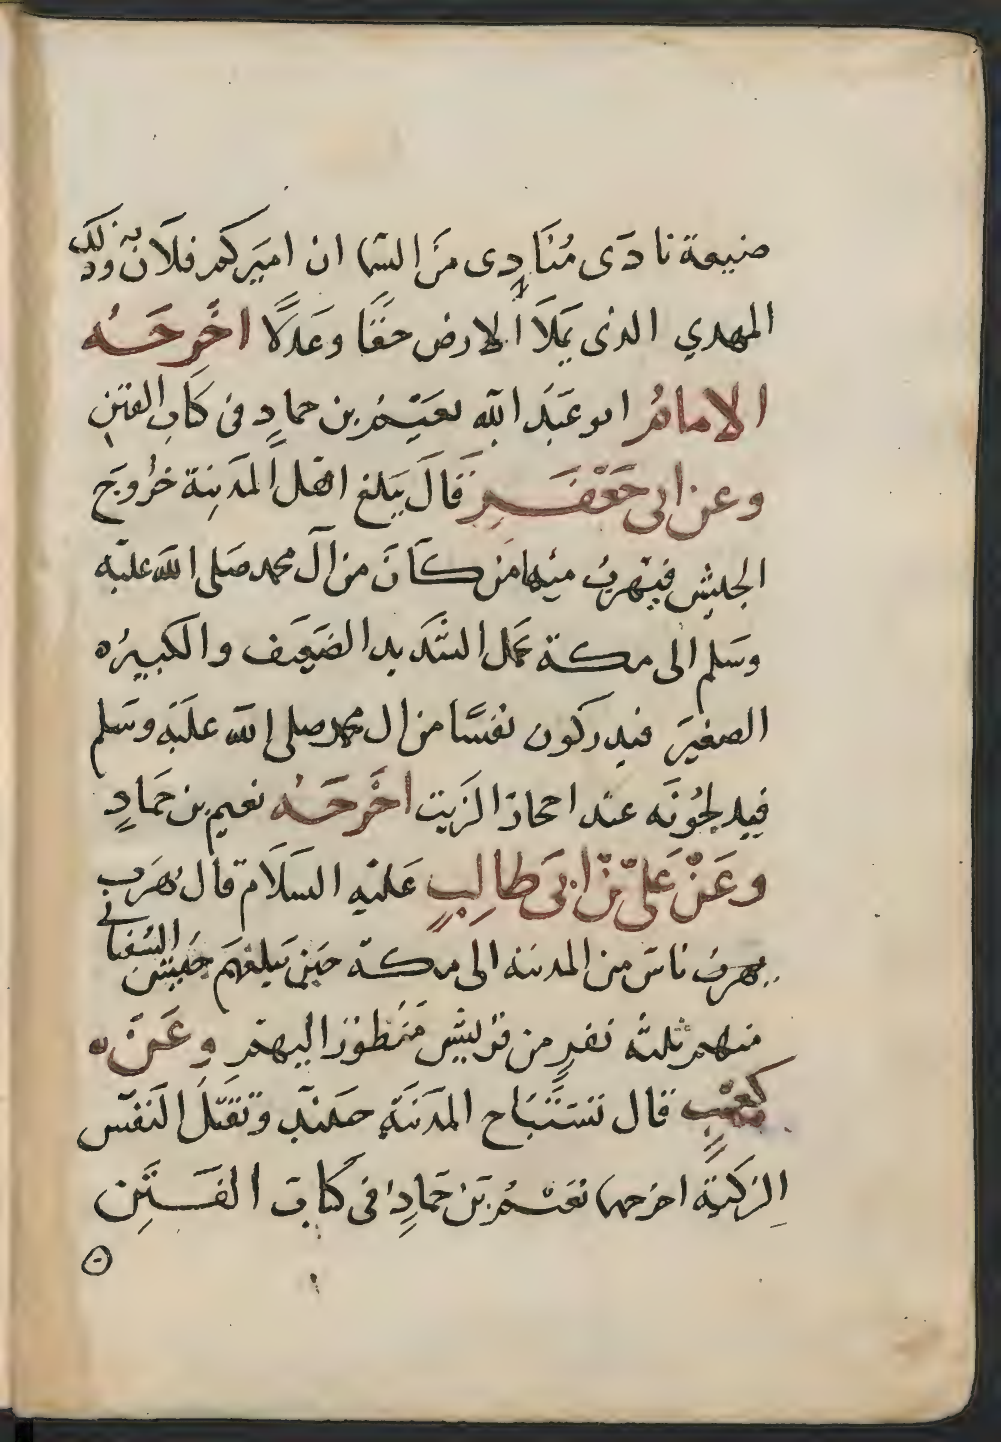 ضيعة نادى منادى من السما ان اميركم فلان وذلك
المهدي الذى يملا الارض حقا وعدلا اخرجه
الامام ابو عبد الله نعيم بن حماد فى كتاب الفتن
وعن ابى جعفر قال يبلغ اهل المدينة خروج
الجيش فيهرب منها من كان من آل محمد صلى الله عليه
وسلم الى مكة يحمل الشديد الضعيف والكبير
الصغير فيدركون نفسا من ال محمد صلى الله عليه وسلم
فيدبحونه عند احجار الزيت اخرجه نعيم بن حماد
وعن على بن ابى طالب عليه السلام قال يهرب
ناس من المدينة الى مكة حين يبلغهم جيش السفيانى
منهم ثلثة نفر من قريش منظور اليهم وعن
كعب قال تستباح المدينة حينئذ وتقتل النفس
الزكية اخرجهما نعيم بن حماد فى كتاب الفتن